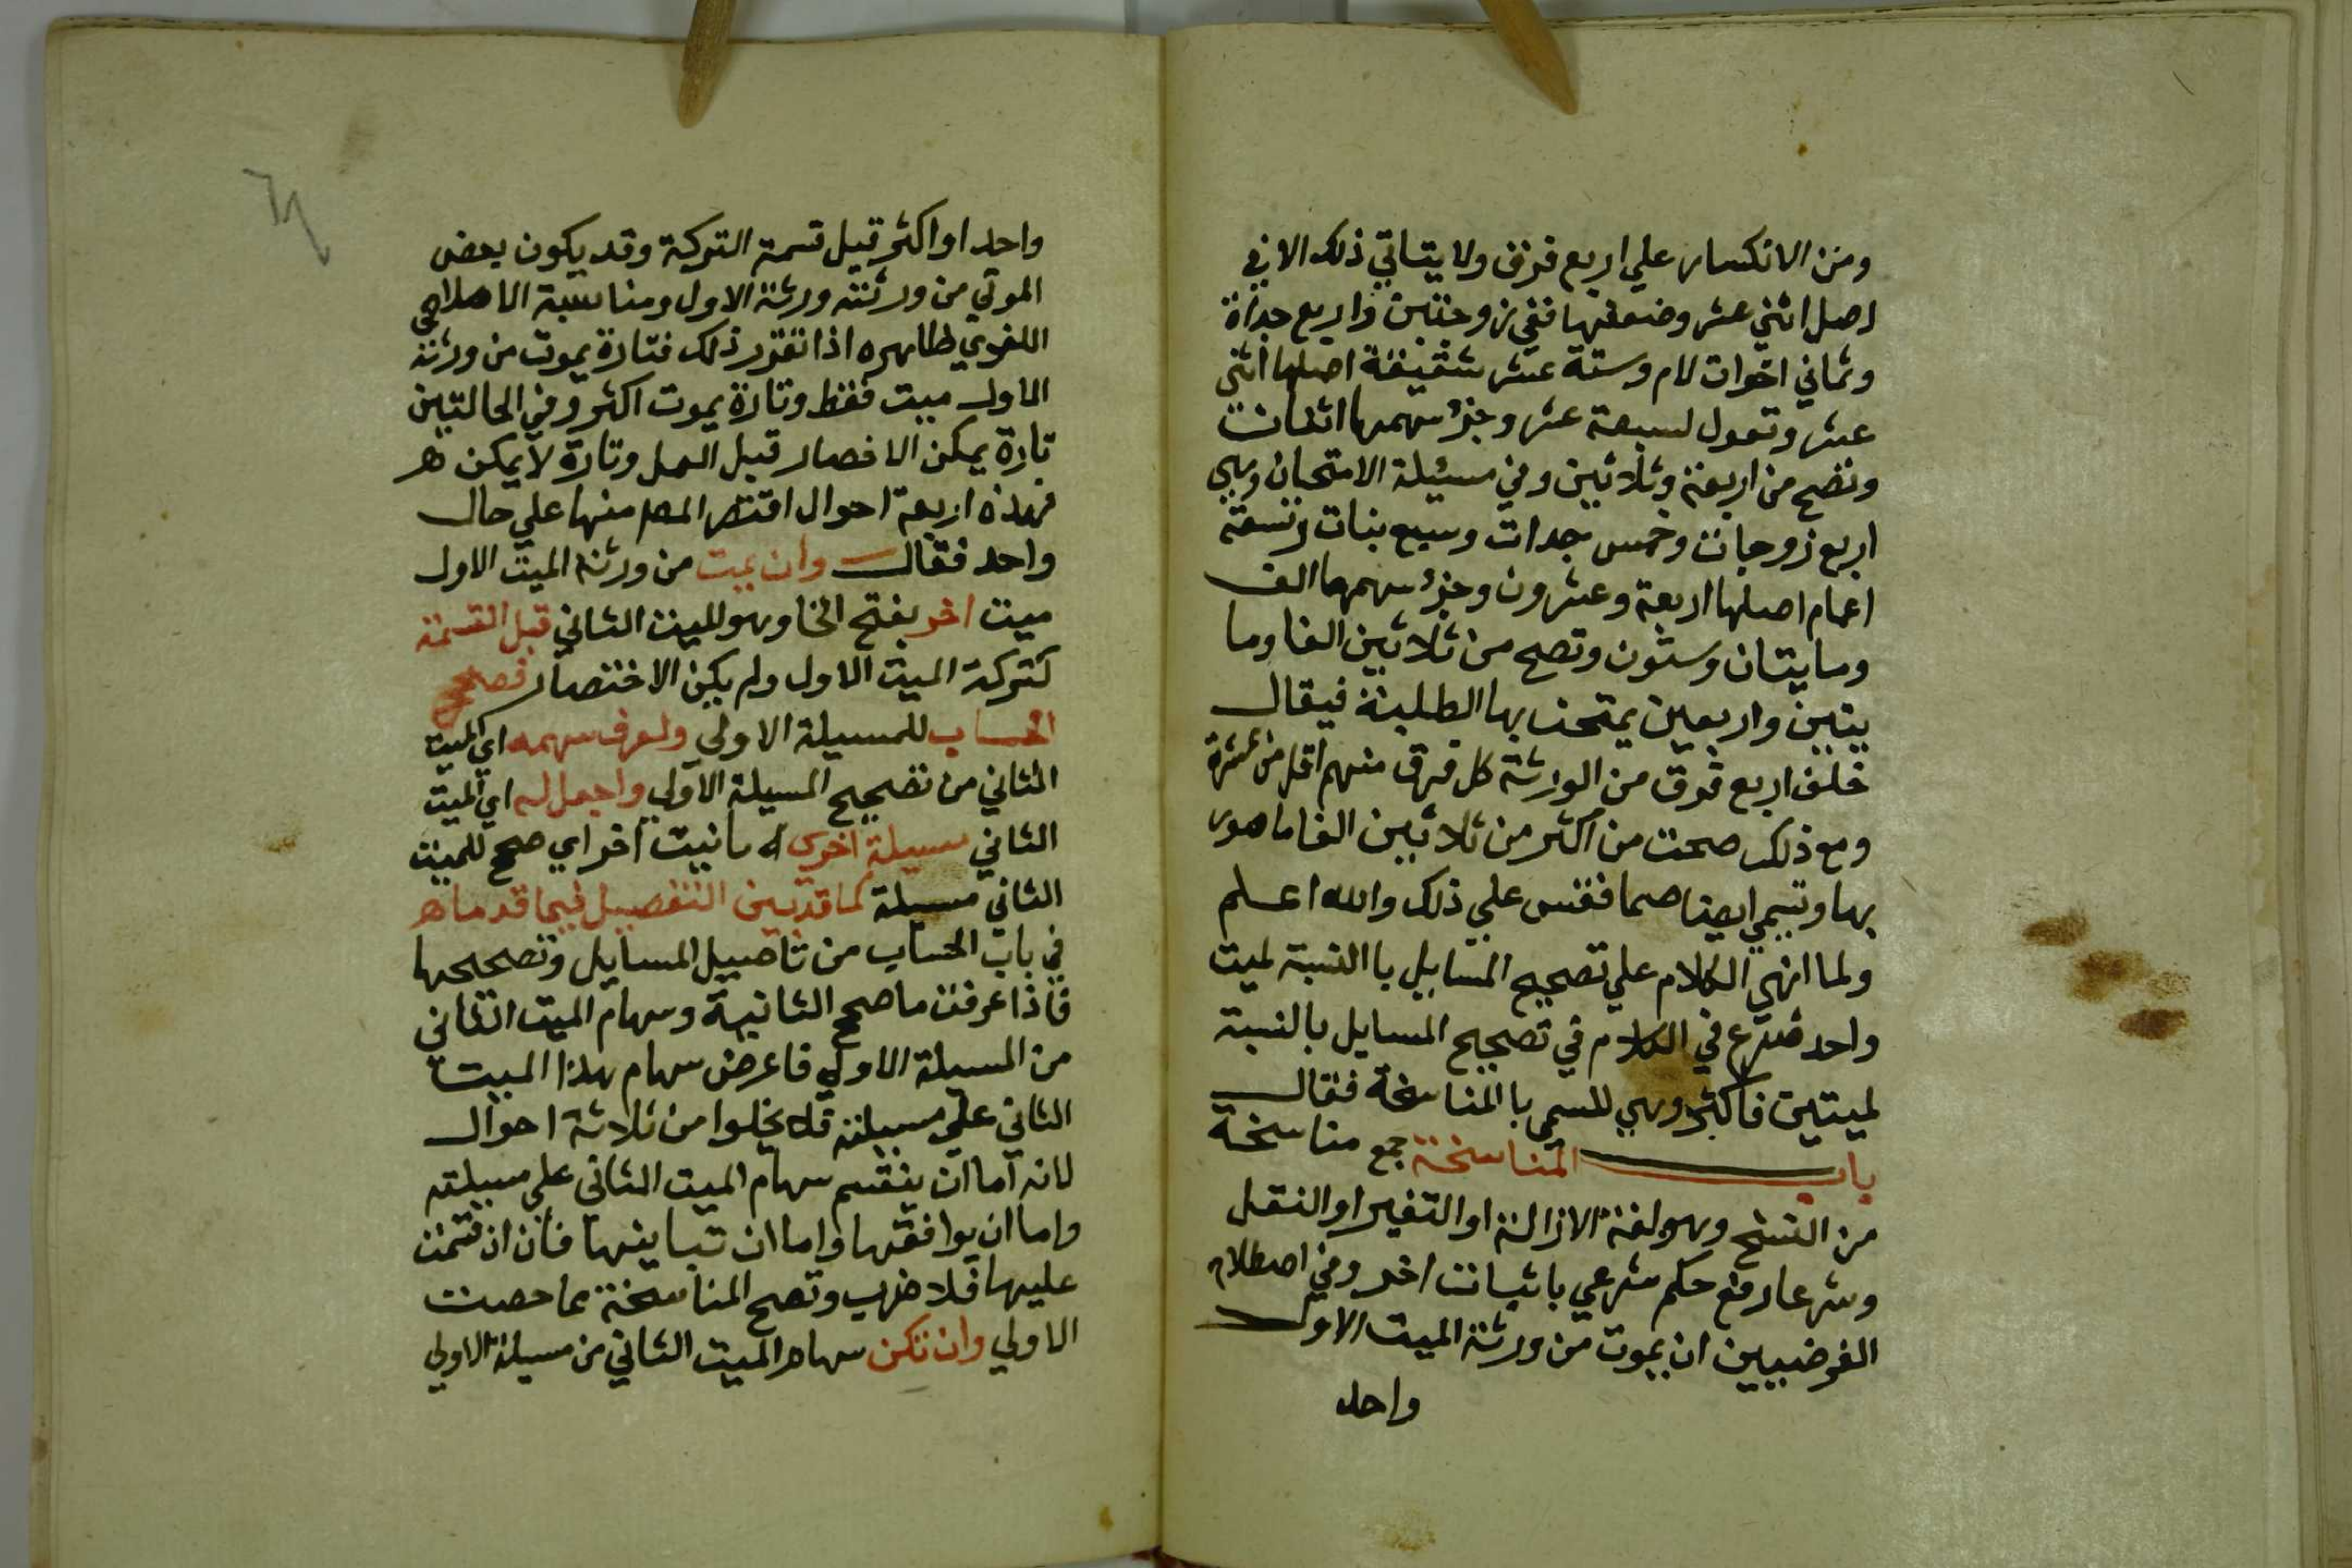 ومن الانكسار علي اربع فرق ولا يتاتي ذلك الا في
اصل اثني عشر وضعفها ففي زوجتين واربع جداة
وثماني اخوات لام وستة عشر شقيقة اصلها اثني
عشر وتعول لسبعة عشر وجزؤ سهمها اثنان
وتصح من اربعة وثلاثين وفي مسئلة الامتحان وهي
اربع زوجات وخمس جدات وسبع بنات وتسعة
اعمام اصلها اربعة وعشرون وجزؤ سهمها الف
ومايتان وستون وتصح من ثلاثين الفا وما
يتين واربعين يمتحن بها الطلبة فيقال
خلف اربع فرق من الورثة كل فرق منهم اقل من عشرة
ومع ذلك صحت من اكثر من ثلاثين الفا ما هو
بها وتسمي ايضا صما فقس علي ذلك والله اعلم
ولما انهي الكلام علي تصحيح المسايل با النسبة لميت
واحد شرع في الكلام في تصحيح المسايل بالنسبة
لميتين فاكثر وهي المسمي با المناسخة فقال
باب المناسخة جمع مناسخة
من النسخ وهو لغة الازالة او التغير او النقل
وشرعا رفع حكم شرعي باثبات اخر وفي اصطلاح
الفرضيين ان يموت من ورثة الميت الاول
واحد
واحد او اكثر قبل قسمة التركة وقد يكون بعض
الموتي من ورثته ورثة الاول ومناسبة الاصلاحي
اللغوي ظاهره اذا تقرر ذلك فتارة يموت من ورثة
الاول ميت فقط وتارة يموت اكثر وفي الحالتين
تارة يمكن الاخصار قبل العمل وتارة لا يمكن
فهذه اربعة احوال اقتصر المصـ منها علي حال
واحد فقال وان يمت من ورثة الميت الاول
ميت اخر بفتح الخا وهو الميت الثاني قبل القسمة
لتركة الميت الاول ولم يكن الاختصار فصحح
الحساب للمسيلة الاولي ولعرف سهمه اي الميت
الثاني من تصحيح المسيلة الاولي واجعل له اي الميت
الثاني مسيلة اخرى اخر اي صحح للميت
الثاني مسيلة كما قد بين التفصيل فيما قدما
في باب الحساب من تاصيل المسايل وتصحيحها
فاذا عرفت ما صح الثانية وسهام الميت الثاني
من المسيلة الاولي فاعرض سهام هذا الميت
الثاني علي مسيلته فلا يخلوا من ثلاثة احوال
لانه اما ان ينقسم سهام الميت الثاني علي مسيلته
واما ان يوافقها واما ان تباينها فان انقسمت
عليها فلا ضرب وتصح المناسخة مما حصت
الاولي وان تكن سهام الميت الثاني من مسيلة الاولي